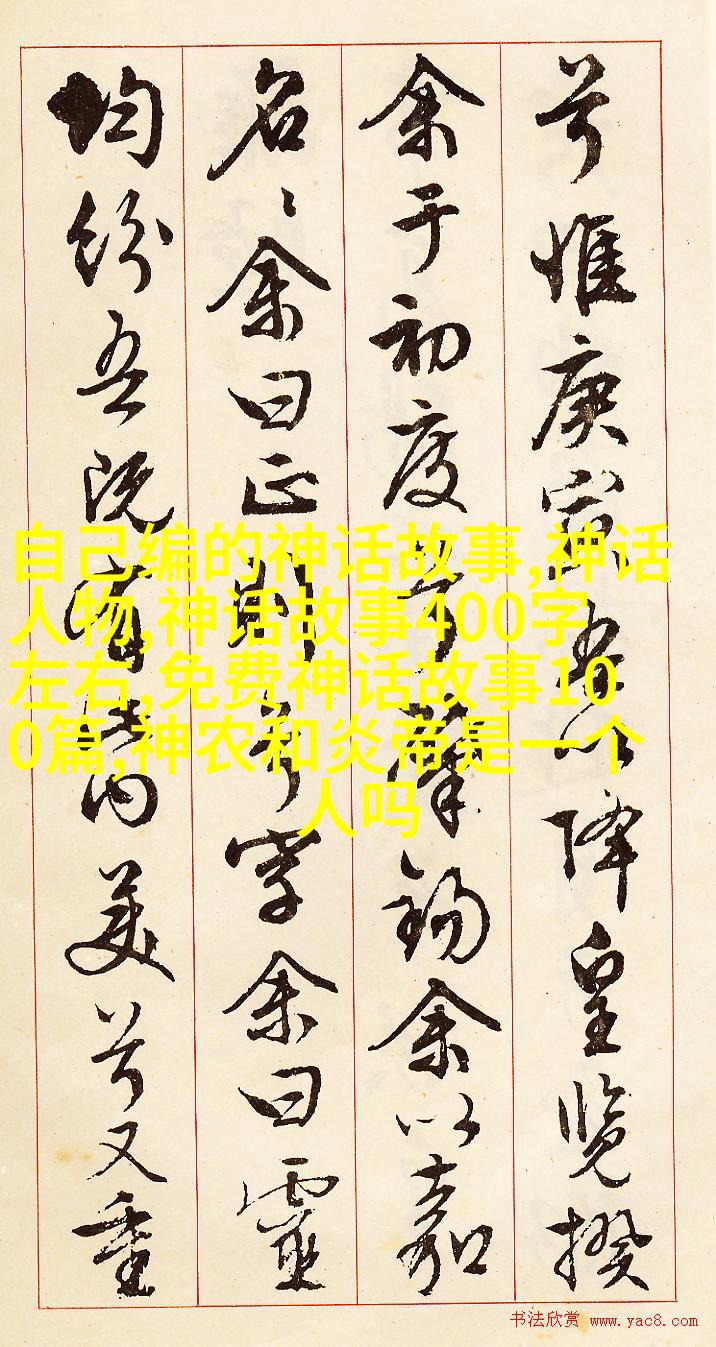 兮惟庚寅吾以降皇覽揆
余于初度兮肇錫余以嘉
名〻余曰正則兮字余曰靈
均紛吾既有此内美兮又重
自己编的神话故事,神话
人物,神话故事400字
左右,免费神话故事10
0篇,神农和炎帝是一个
人吗
书法欣赏 www.yac8.com